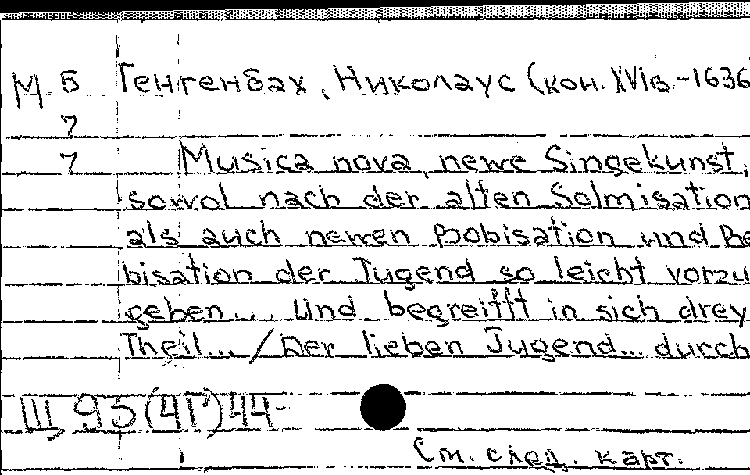 М Б Генгенбах, Николаус (кон. XVIв.-1636
7
7 Musica nova, newe Singekunst,
sowol nach der alten Solmisation
als auch newen Bobisation und Be
bisation der Jugend so leicht vorzu
geben... Und begreifft in sich drey
Theil... / Der lieben Jugend... durch
Ш, 95(4Г)44
См. след. карт.